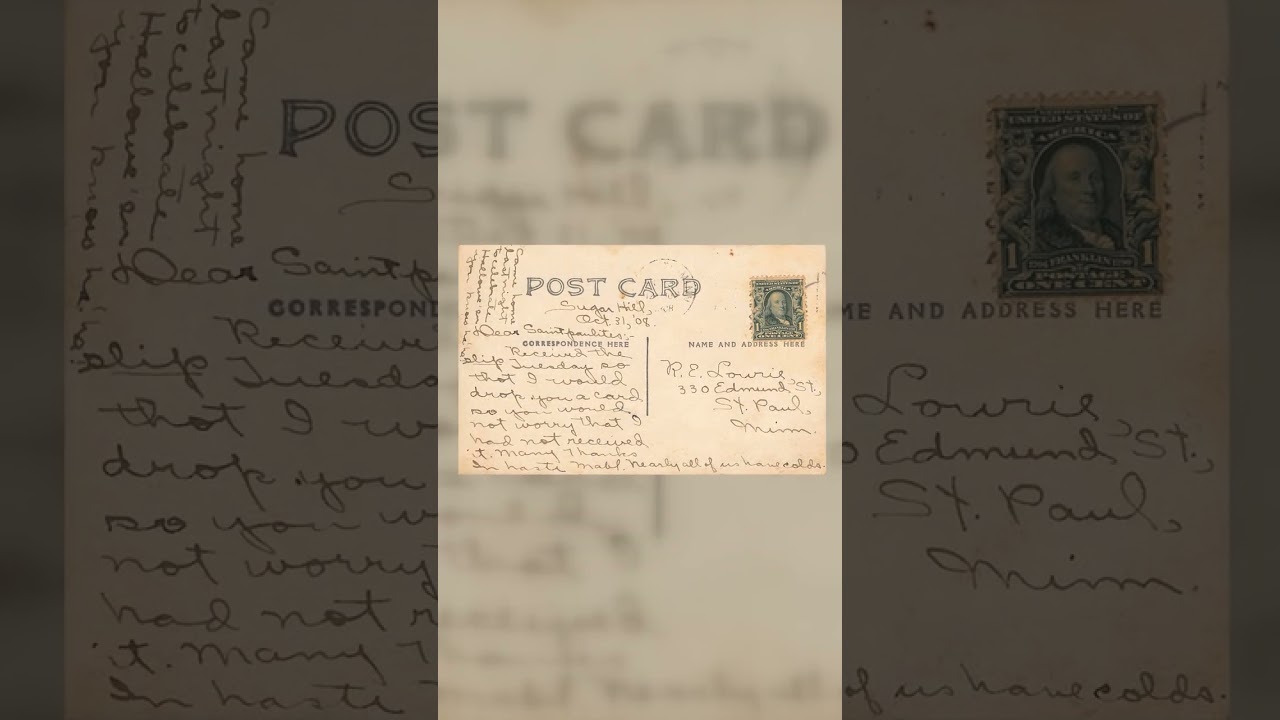 Came home
last night
to celebrate
Hallowe'en
you know
POST CARD
Sugar Hill, NH
Oct. 31, '08.
Dear Saintpaulites:-
CORRESPONDENCE HERE
Received the
slip Tuesday so
that I would
drop you a card
so you would
not worry that I
had not received
it. Many Thanks
In haste Mabl. Nearly all of us have colds.
UNITED STATES OF
AMERICA
1 1
FRANKLIN
POSTAGE
ONE CENT
NAME AND ADDRESS HERE
R. E. Lowrie,
330 Edmund St.,
St. Paul,
Minn.